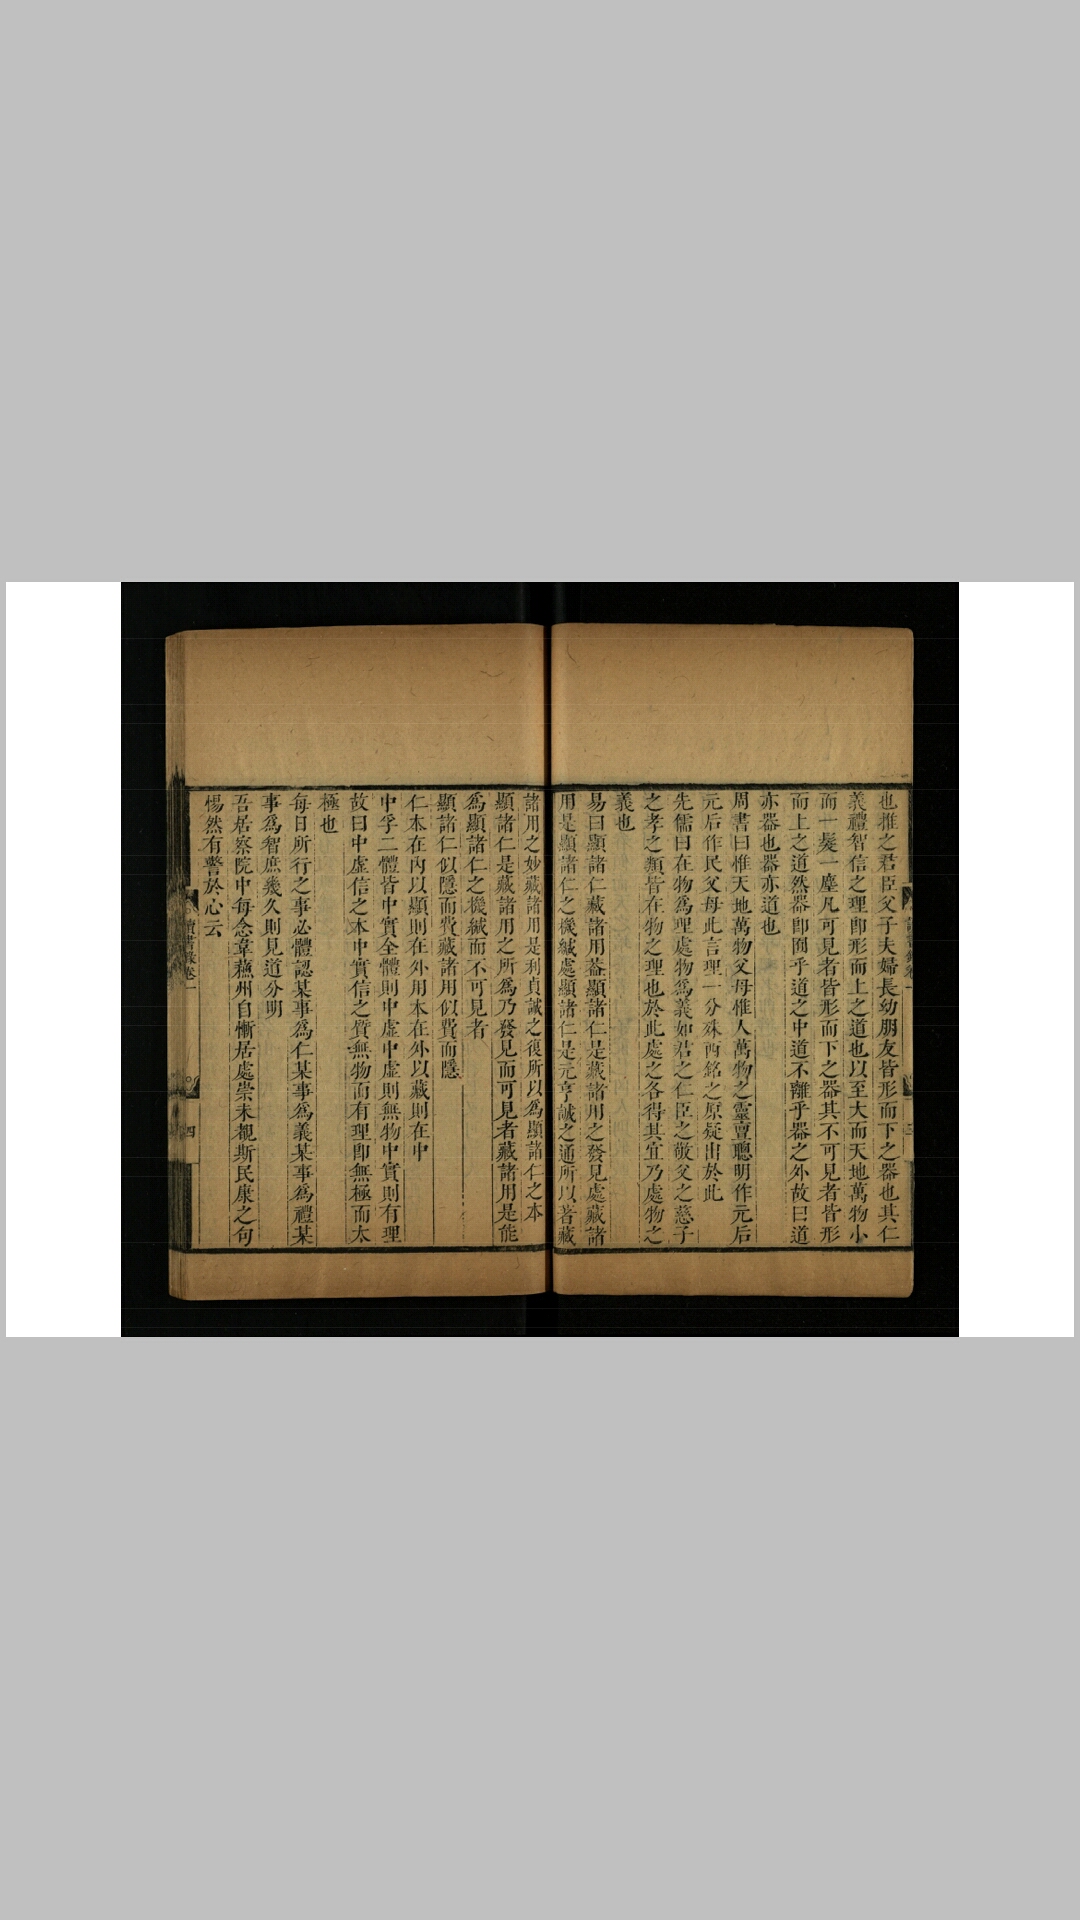 也推之君臣父子夫婦長幼朋友皆形而下之器也其仁
義禮智信之理即形而上之道也以至大而天地萬物小
而一髮一塵凡可見者皆形而下之器其不可見者皆形
而上之道然器即囿乎道之中道不離乎器之外故曰道
亦器也器亦道也
周書曰惟天地萬物父母惟人萬物之靈亶聰明作元后
元后作民父母此言理一分殊西銘之原疑出於此
先儒曰在物為理處物為義如君之仁臣之敬父之慈子
之孝之類皆在物之理也於此處之各得其宜乃處物之
義也
易曰顯諸仁藏諸用蓋顯諸仁是藏諸用之發見處藏諸
用是顯諸仁之機緘處顯諸仁是元亨誠之通所以著藏
諸用之妙藏諸用是利貞誠之復所以為顯諸仁之本
顯諸仁是藏諸用之所為乃發見而可見者藏諸用是能
為顯諸仁之機緘而不可見者
顯諸仁似隱而費藏諸用似費而隱
仁本在內以顯則在外用本在外以藏則在中
中孚二體皆中實全體則中虛中虛則無物中實則有理
故曰中虛信之本中實信之質無物而有理即無極而太
極也
每日所行之事必體認某事為仁某事為義某事為禮某
事為智庶幾久則見道分明
吾居察院中每念韋蘇州自慚居處崇未覩斯民康之句
惕然有警於心云
讀書錄卷一
四